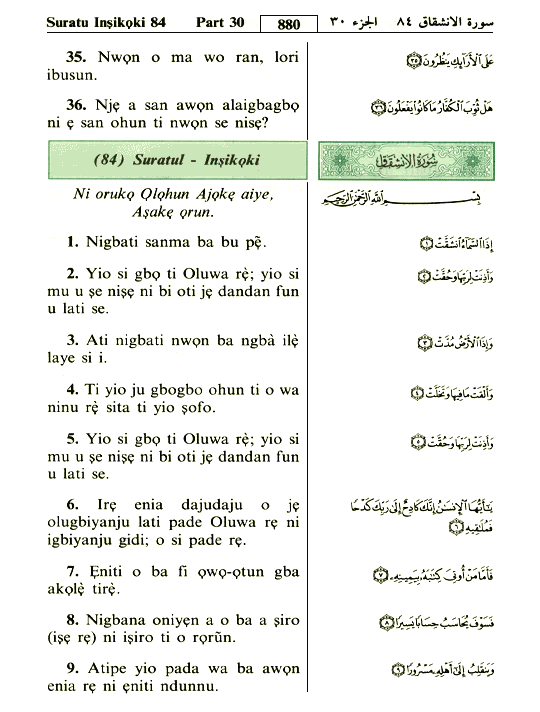 Suratu Inṣikọki 84 Part 30 880 الجزء ٣٠ سورة الانشقاق ٨٤
35. Nwọn o ma wo ran, lori
ibusun.
عَلَى ٱلْأَرَآئِكِ يَنظُرُونَ ﴿٣٥﴾
36. Njẹ a san awọn alaigbagbọ
ni ẹ san ohun ti nwọn se nisẹ?
هَلْ ثُوِّبَ ٱلْكُفَّارُ مَا كَانُوا۟ يَفْعَلُونَ ﴿٣٦﴾
(84) Suratul - Inṣikọki
سُورَةُ الانشِقَاق
Ni orukọ Ọlọhun Ajọkẹ aiye,
Aṣakẹ ọrun.
بِسْمِ ٱللَّهِ ٱلرَّحْمَٰنِ ٱلرَّحِيمِ
1. Nigbati sanma ba bu pẹ̃.
إِذَا ٱلسَّمَآءُ ٱنشَقَّتْ ﴿١﴾
2. Yio si gbọ ti Oluwa rẹ̀; yio si
mu u ṣe nisẹ ni bi oti jẹ dandan fun
u lati se.
وَأَذِنَتْ لِرَبِّهَا وَحُقَّتْ ﴿٢﴾
3. Ati nigbati nwọn ba ngbà ilẹ̀
laye si i.
وَإِذَا ٱلْأَرْضُ مُدَّتْ ﴿٣﴾
4. Ti yio ju gbogbo ohun ti o wa
ninu rẹ̀ sita ti yio ṣofo.
وَأَلْقَتْ مَا فِيهَا وَتَخَلَّتْ ﴿٤﴾
5. Yio si gbọ ti Oluwa rẹ̀; yio si
mu u ṣe nisẹ ni bi oti jẹ dandan fun
u lati se.
وَأَذِنَتْ لِرَبِّهَا وَحُقَّتْ ﴿٥﴾
6. Irẹ enia dajudaju o jẹ
olugbiyanju lati pade Oluwa rẹ ni
igbiyanju gidi; o si pade rẹ.
يَٰٓأَيُّهَا ٱلْإِنسَٰنُ إِنَّكَ كَادِحٌ إِلَىٰ رَبِّكَ كَدْحًا
فَمُلَٰقِيهِ ﴿٦﴾
7. Ẹniti o ba fi ọwọ-ọtun gba
akọlẹ̀ tirẹ̀.
فَأَمَّا مَنْ أُوتِىَ كِتَٰبَهُۥ بِيَمِينِهِۦ ﴿٧﴾
8. Nigbana oniyẹn a o ba a ṣiro
(iṣẹ rẹ) ni iṣiro ti o rọrũn.
فَسَوْفَ يُحَاسَبُ حِسَابًا يَسِيرًا ﴿٨﴾
9. Atipe yio pada wa ba awọn
enia rẹ ni ẹniti ndunnu.
وَيَنقَلِبُ إِلَىٰٓ أَهْلِهِۦ مَسْرُورًا ﴿٩﴾